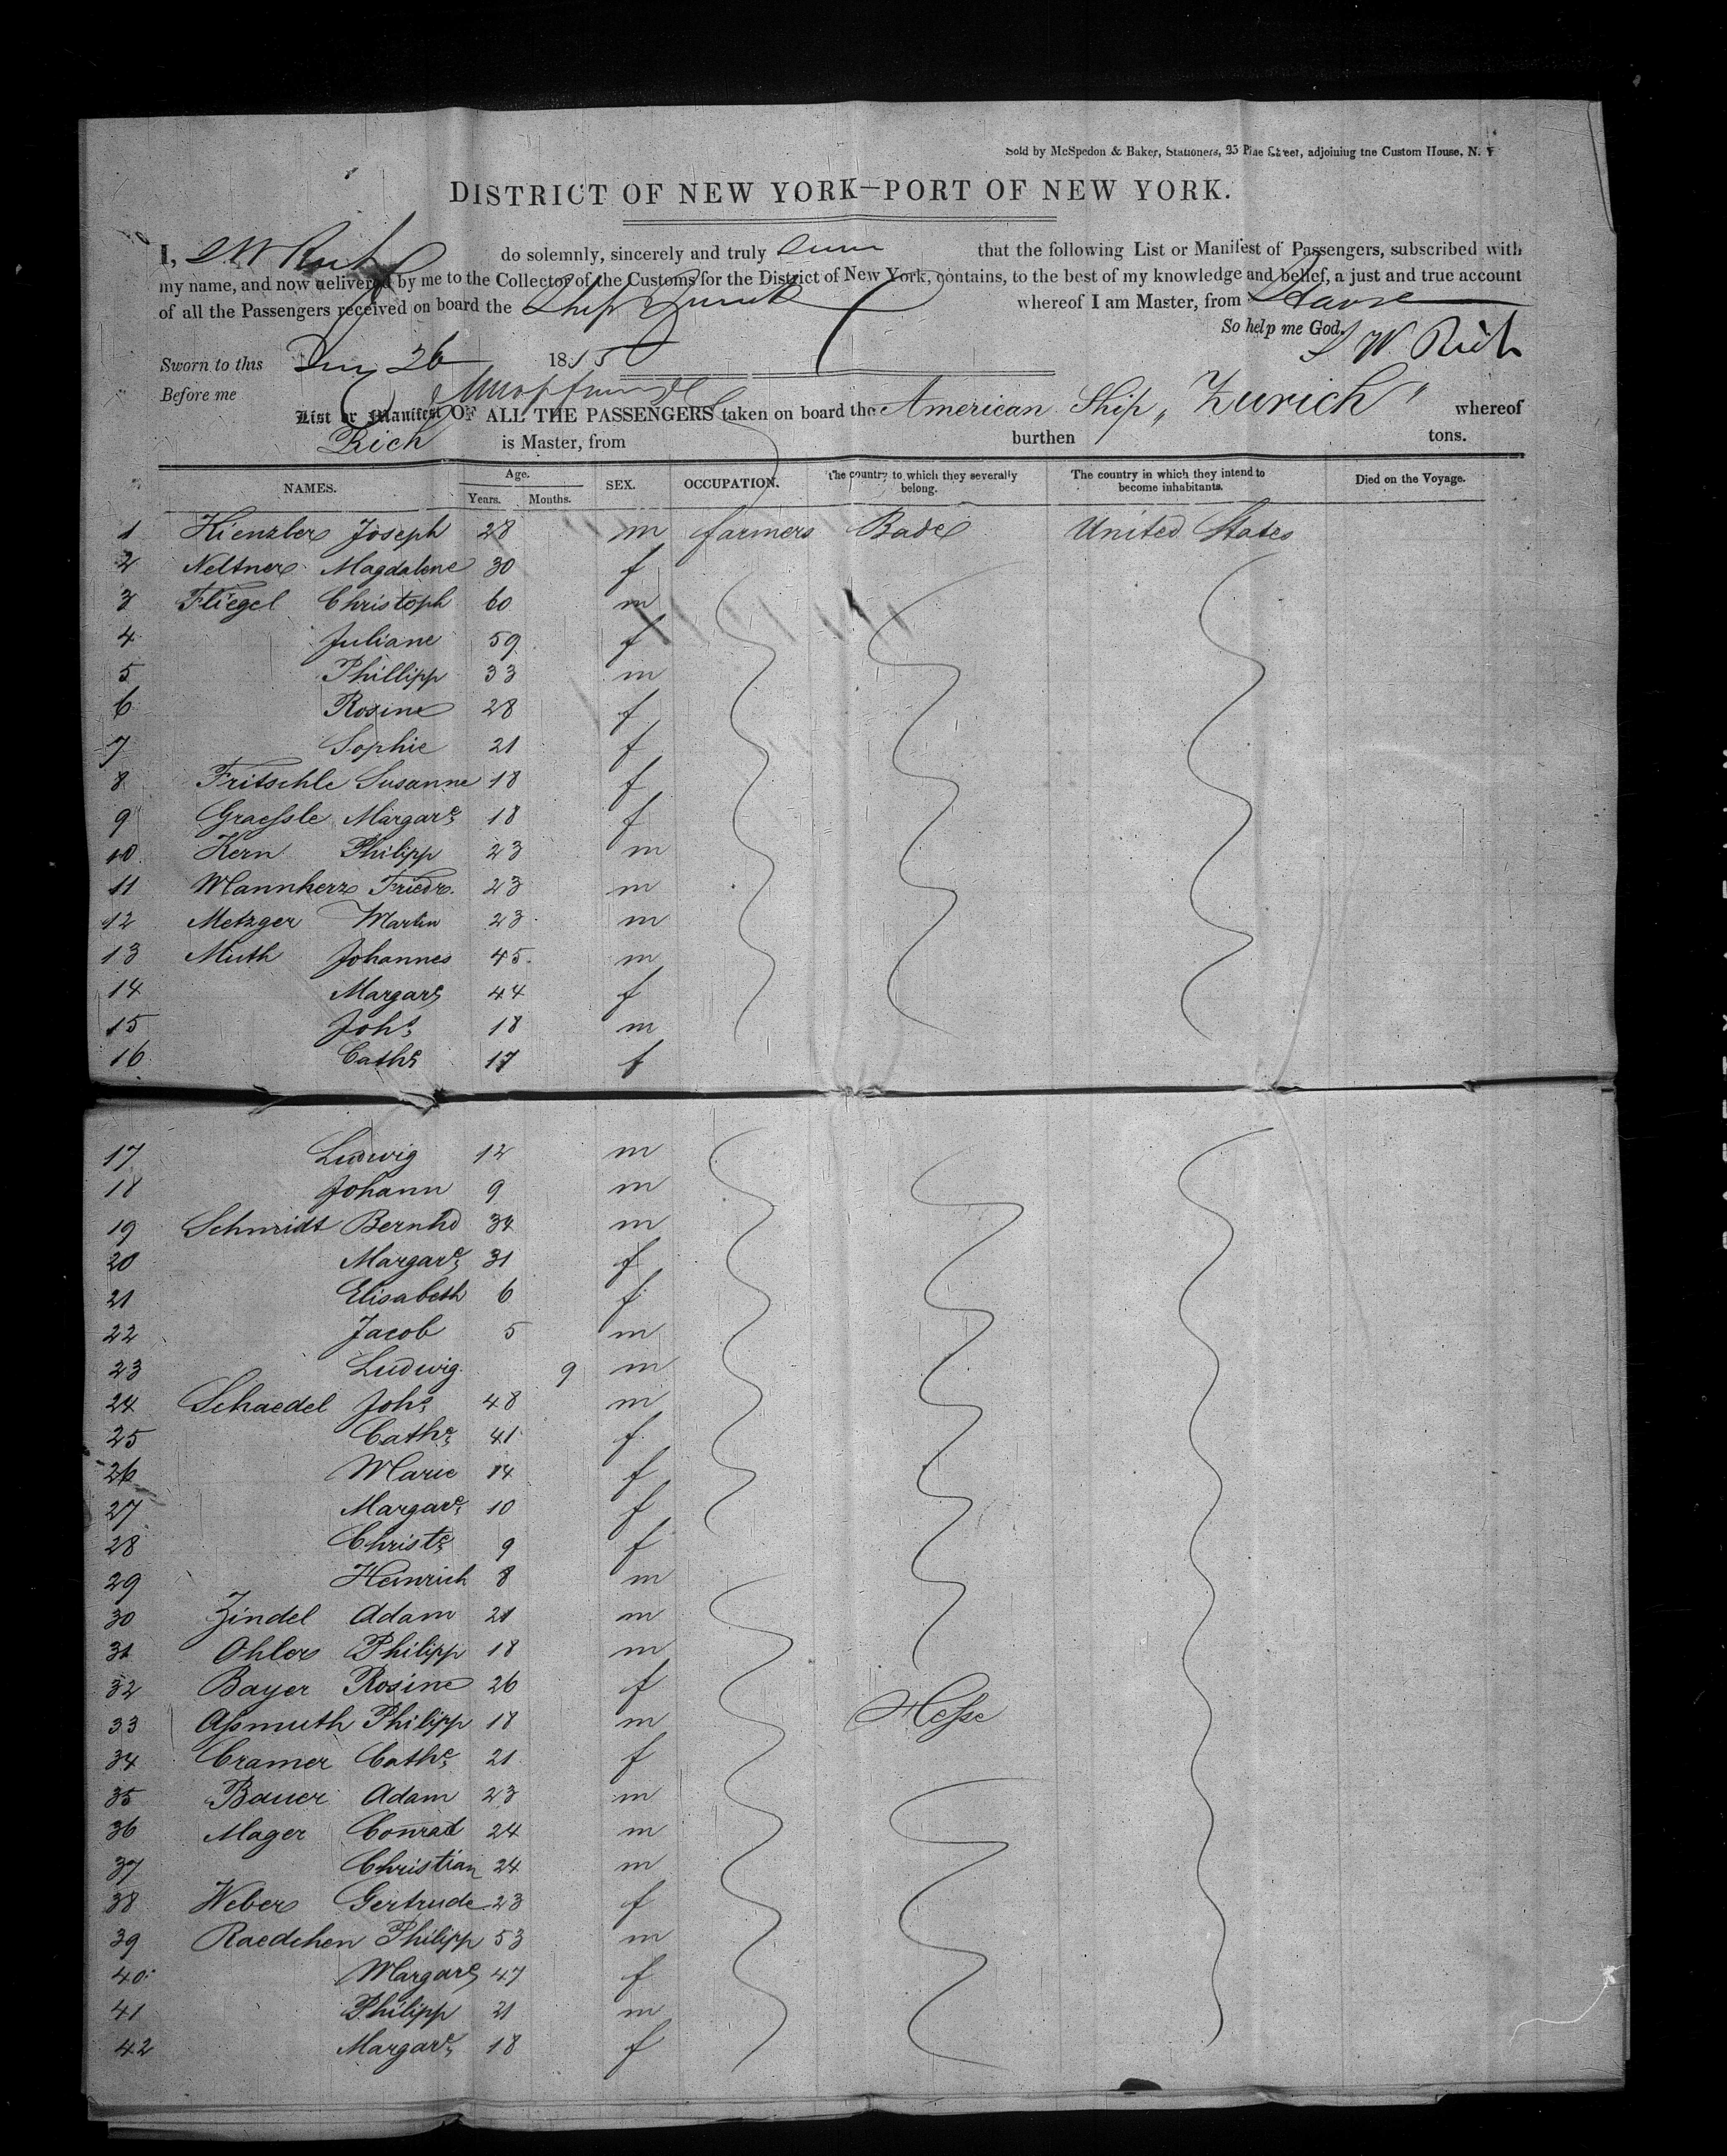 Sold by McSpedon & Baker, Stationers, 25 Pine Street, adjoining the Custom House, N. Y
DISTRICT OF NEW YORK—PORT OF NEW YORK.
I, S W Rich do solemnly, sincerely and truly that the following List or Manifest of Passengers, subscribed with
my name, and now delivered by me to the Collector of the Customs for the District of New York, contains, to the best of my knowledge and belief, a just and true account
of all the Passengers received on board the Ship Zurich whereof I am Master, from Havre
So help me God.
S W. Rich
Sworn to this 26 1850
Before me
List or Manifest OF ALL THE PASSENGERS taken on board the American Ship „ Zurich " whereof
Rich is Master, from burthen tons.
NAMES. Age. Years. Months. SEX. OCCUPATION. The country to which they severally belong. The country in which they intend to become inhabitants. Died on the Voyage.
1 Kienzler Joseph 28 m farmers Bade United States
2 Neltner Magdalene 30 f
3 Fliegel Christoph 60 m
4 Juliane 59 f
5 Phillipp 33 m
6 Rosine 28 f
7 Sophie 21 f
8 Fritschle Susanne 18 f
9 Graessle Margare 18 f
10 Kern Philipp 23 m
11 Mannherz Friedr. 23 m
12 Metzger Martin 23 m
13 Muth Johannes 45 m
14 Margare 44 f
15 Johs 18 m
16 Cathe 17 f
17 Ludwig 12 m
18 Johann 9 m
19 Schmidt Bernhd 34 m
20 Margare 31 f
21 Elisabeth 6 f
22 Jacob 5 m
23 Ludwig 9 m
24 Schaedel Johs 48 m
25 Cathe 41 f
26 Marie 14 f
27 Margare 10 f
28 Christe 9 f
29 Heinrich 8 m
30 Zindel Adam 21 m
31 Ohler Philipp 18 m
32 Bayer Rosine 26 f
33 Assmuth Philipp 18 m Hesse
34 Cramer Cathe 21 f
35 Bauer Adam 23 m
36 Mager Conrad 24 m
37 Christian 24 m
38 Weber Gertrude 23 f
39 Raedchen Philipp 53 m
40 Margare 47 f
41 Philipp 21 m
42 Margare 18 f